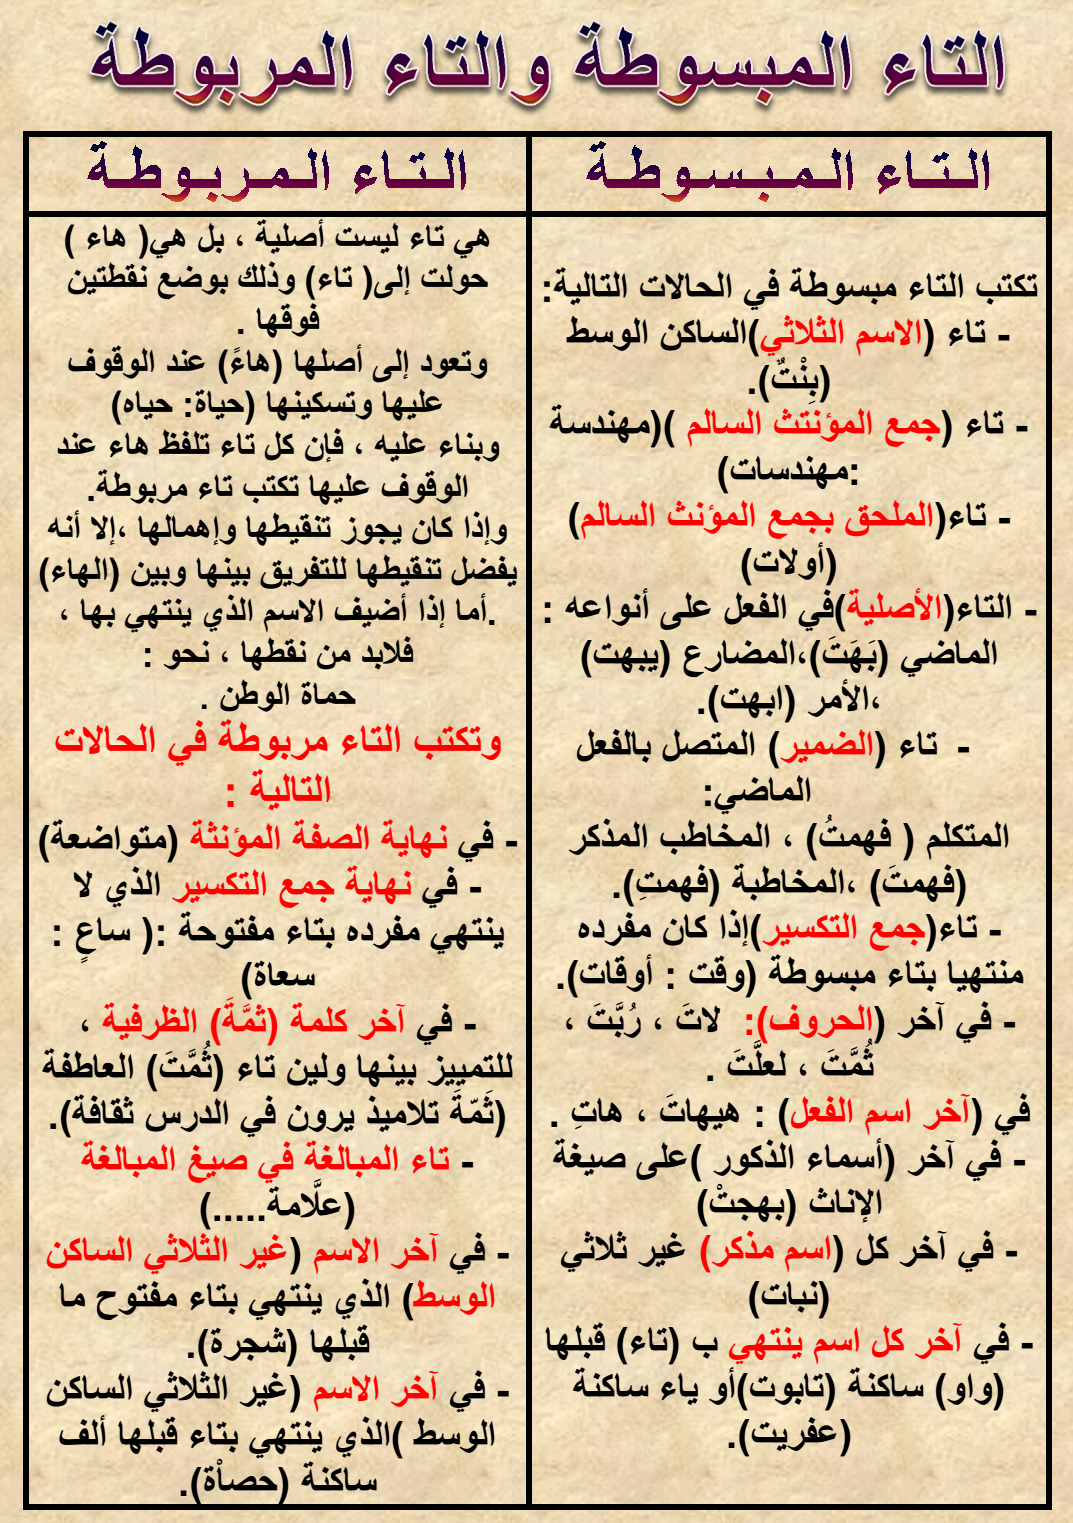 التاء المبسوطة والتاء المربوطة
الـتـاء الـمـبـسـوطـة
تكتب التاء مبسوطة في الحالات التالية:
- تاء (الاسم الثلاثي)الساكن الوسط
(بِنْتٌ).
- تاء (جمع المؤنتث السالم )(مهندسة
:مهندسات)
- تاء(الملحق بجمع المؤنث السالم)
(أولات)
- التاء(الأصلية)في الفعل على أنواعه :
الماضي (بَهَتَ)،المضارع (يبهت)
،الأمر (ابهت).
- تاء (الضمير) المتصل بالفعل
الماضي:
المتكلم ( فهمتُ) ، المخاطب المذكر
(فهمتَ) ،المخاطبة (فهمتِ).
- تاء(جمع التكسير)إذا كان مفرده
منتهيا بتاء مبسوطة (وقت : أوقات).
- في آخر (الحروف): لاتَ ، رُبَّتَ ،
ثُمَّتَ ، لعلَّتَ .
في (آخر اسم الفعل) : هيهاتَ ، هاتِ .
- في آخر (أسماء الذكور )على صيغة
الإناث (بهجتْ)
- في آخر كل (اسم مذكر) غير ثلاثي
(نبات)
- في آخر كل اسم ينتهي ب (تاء) قبلها
(واو) ساكنة (تابوت)أو ياء ساكنة
(عفريت).
الـتـاء الـمـربـوطـة
هي تاء ليست أصلية ، بل هي( هاء )
حولت إلى( تاء) وذلك بوضع نقطتين
فوقها .
وتعود إلى أصلها (هاءً) عند الوقوف
عليها وتسكينها (حياة: حياه)
وبناء عليه ، فإن كل تاء تلفظ هاء عند
الوقوف عليها تكتب تاء مربوطة.
وإذا كان يجوز تنقيطها وإهمالها ،إلا أنه
يفضل تنقيطها للتفريق بينها وبين (الهاء)
.أما إذا أضيف الاسم الذي ينتهي بها ،
فلابد من نقطها ، نحو :
حماة الوطن .
وتكتب التاء مربوطة في الحالات
التالية :
- في نهاية الصفة المؤنثة (متواضعة)
- في نهاية جمع التكسير الذي لا
ينتهي مفرده بتاء مفتوحة :( ساعٍ :
سعاة)
- في آخر كلمة (ثمَّةَ) الظرفية ،
للتمييز بينها ولين تاء (ثُمَّتَ) العاطفة
(ثَمّةَ تلاميذ يرون في الدرس ثقافة).
- تاء المبالغة في صيغ المبالغة
(علَّامة.....)
- في آخر الاسم (غير الثلاثي الساكن
الوسط) الذي ينتهي بتاء مفتوح ما
قبلها (شجرة).
- في آخر الاسم (غير الثلاثي الساكن
الوسط )الذي ينتهي بتاء قبلها ألف
ساكنة (حصاْة).